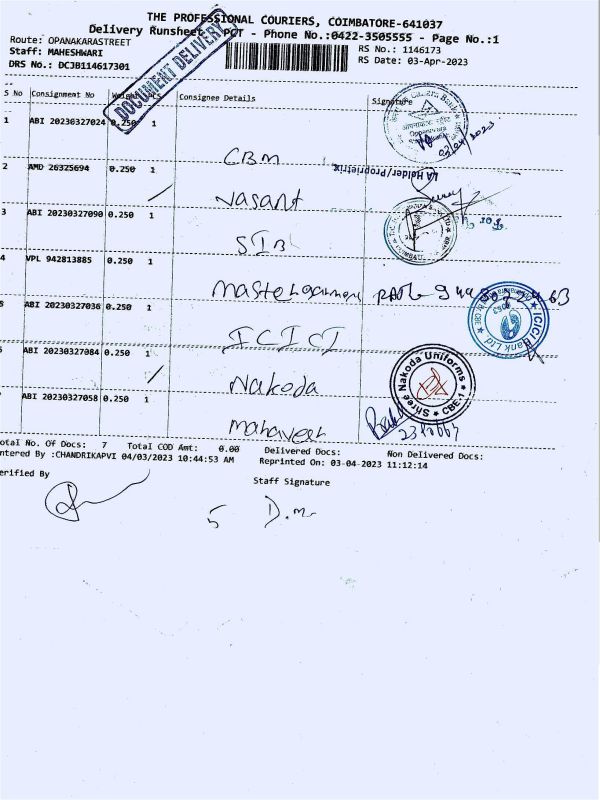 THE PROFESSIONAL COURIERS, COIMBATORE-641037
Delivery Runsheet - PCT - Phone No.:0422-3505555 - Page No.:1
Route: OPANAKARASTREET RS No.: 1146173
Staff: MAHESHWARI RS Date: 03-Apr-2023
DRS No.: DCJB114617301
DOCUMENT DELIVERY
S No Consignment No Weight Pcs Consignee Details Signature
1 ABI 20230327024 0.250 1
CBM
2 AMD 26325694 0.250 1
LA Holder/Proprietrix
Vasant
3 ABI 20230327090 0.250 1
For
SIB
4 VPL 942813885 0.250 1
ICICI Bank Ltd
ABI 20230327038 0.250 1
ICICI
ABI 20230327084 0.250 1
Shree Nakoda Uniforms ★ CBE-1 ★
Nakoda
ABI 20230327058 0.250 1
Mahaveer
Total No. Of Docs: 7 Total COD Amt: 0.00 Delivered Docs: Non Delivered Docs:
ntered By :CHANDRIKAPVI 04/03/2023 10:44:53 AM Reprinted On: 03-04-2023 11:12:14
erified By Staff Signature
5 D.m